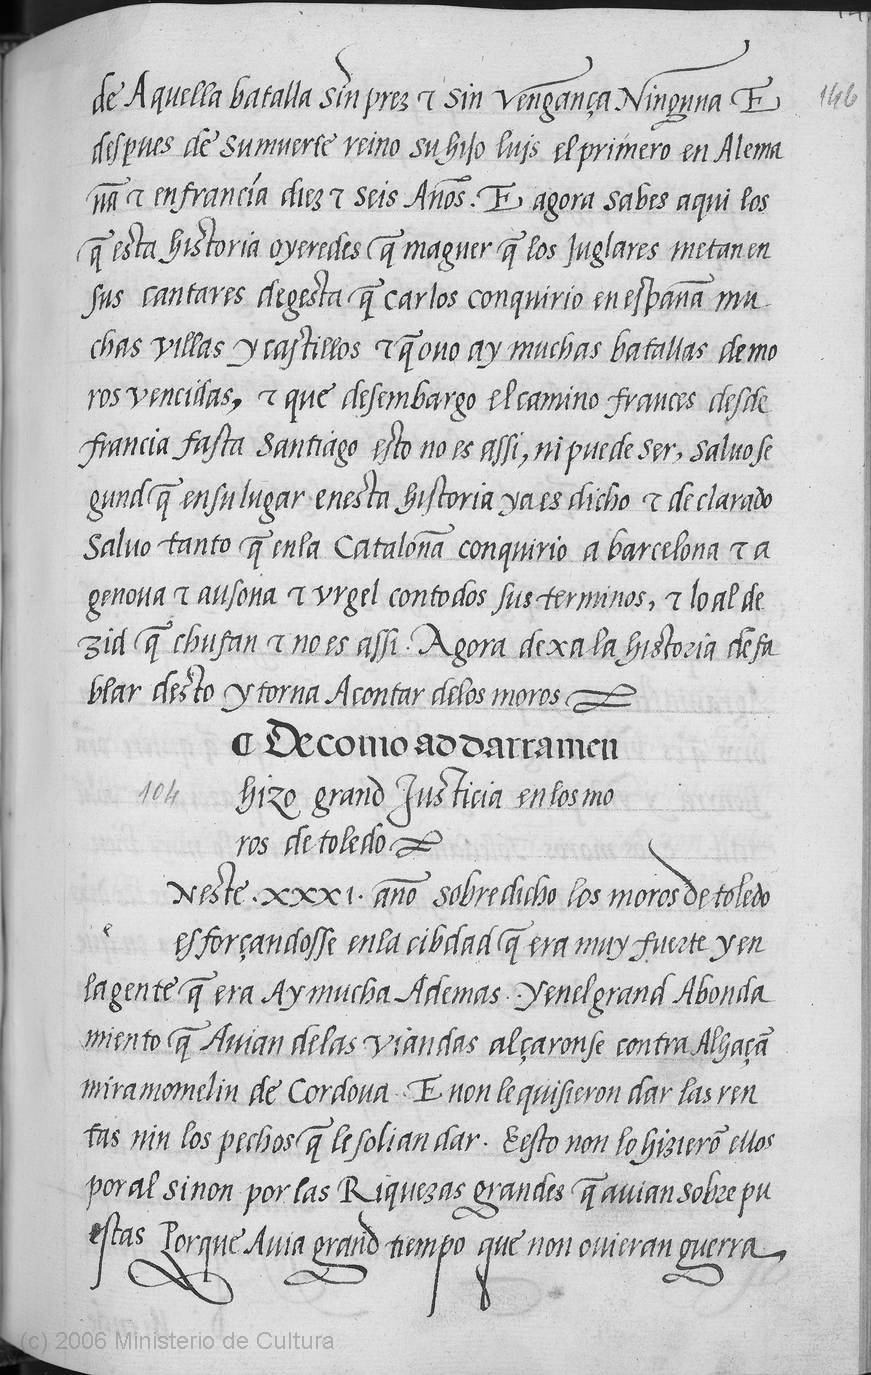 146
de Aquella batalla sin prez ⁊ sin vengança Ninguna E
despues de su muerte reino su hijo luis el primero en Alema
na ⁊ en francia diez ⁊ seis Años. E agora sabes aqui los
q̃ esta historia oyeredes q̃ maguer q̃ los Juglares metan en
sus cantares de gesta q̃ Carlos conquirio en españa mu
chas villas y castillos ⁊ q̃ ouo ay muchas batallas de mo
ros vencidas, ⁊ que desembargo el camino frances desde
francia fasta Santiago esto no es assi, ni puede ser, saluo se
gund q̃ en su lugar en esta historia ya es dicho ⁊ declarado
Saluo tanto q̃ en la Cataloña conquirio a barcelona ⁊ a
genoua ⁊ ausona ⁊ vrgel con todos sus terminos, ⁊ lo al de
zid q̃ chufan ⁊ no es assi. Agora dexa la historia de fa
blar desto y torna A contar de los moros
¶ De como addarramen
104 hizo grand Justicia en los mo
ros de toledo
e Neste .xxxı. año sobredicho los moros de toledo
esforçandosse en la cibdad q̃ era muy fuerte y en
la gente q̃ era Ay mucha Ademas. y en el grand Abonda
miento q̃ Auian de las viandas alçaronse contra Alhaçã
miramomelin de Cordoua. E non le quisieron dar las ren
tas nin los pechos q̃ le solian dar. E esto non lo hizierõ ellos
por al sinon por las Riquezas grandes q̃ auian sobre pu
estas Porque Auia grand tiempo que non ouieran guerra
(c) 2006 Ministerio de Cultura